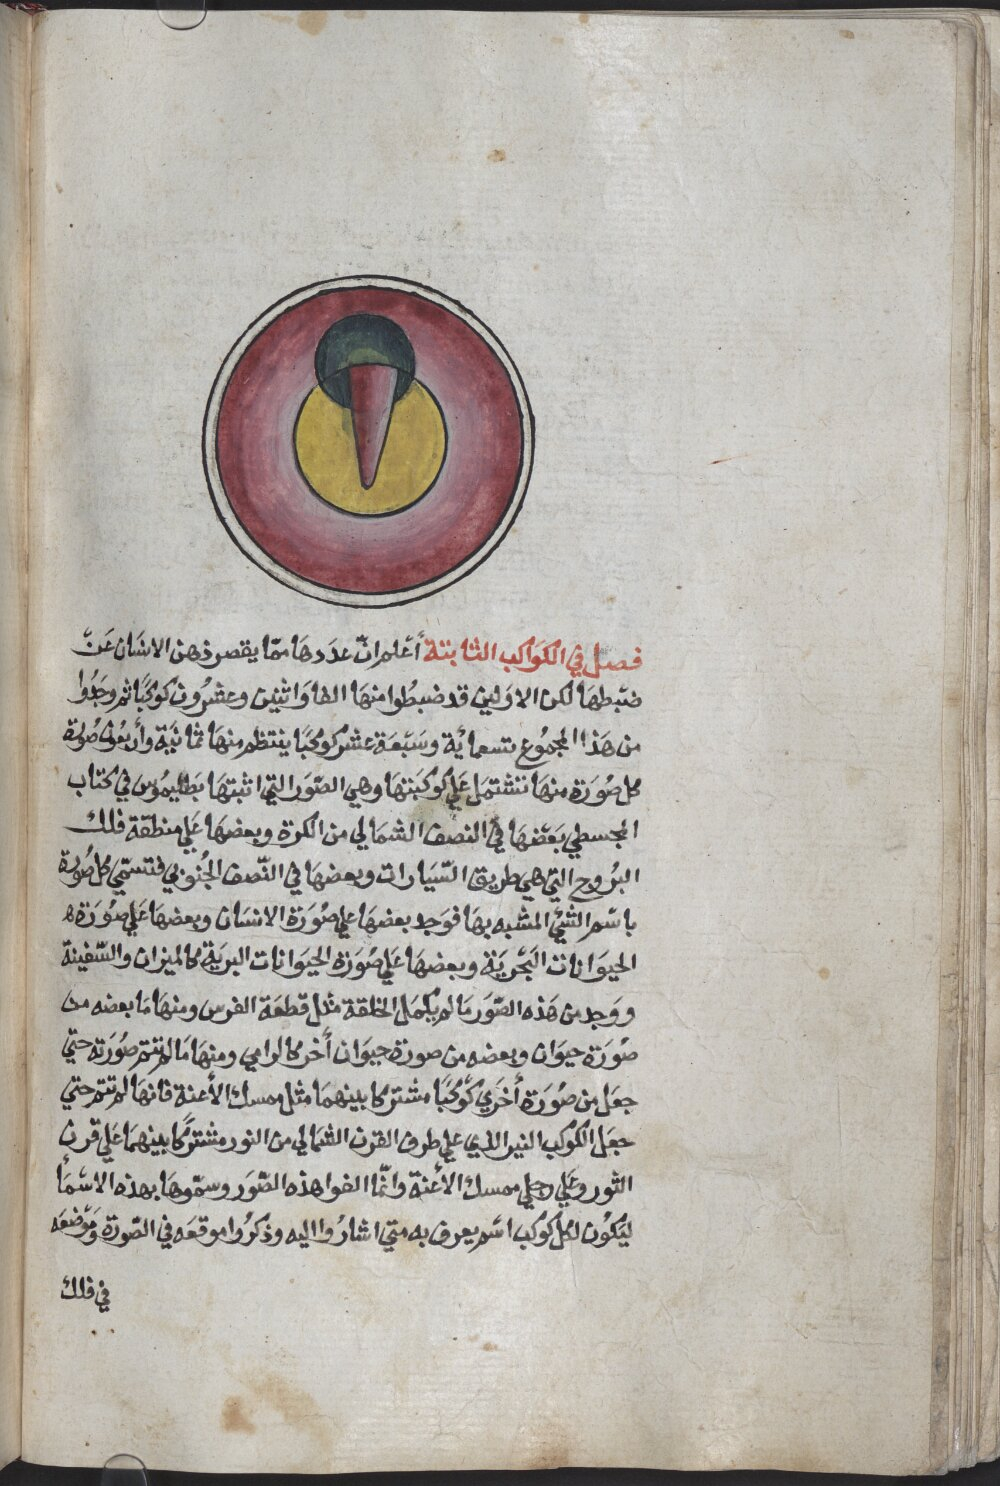 فصل في الكوَاكب الثابتة أعلم انّ عدَدهَا ممّا يقصر ذهن الانسَان عَنْ
ضبَطهَا لكن الاوَلين قد ضبطُوا منهَا الفا وَاثنين وعشرُون كوكبًا ثم وجَدُوا
من هَذا المجمُوع تسعمائة وسَبَعة عشر كوكبًا ينتظم منهَا ثمانيَة وأربعُون صُورة
كل صُورَة منهَا تشتمل عَلي كوكبَتها وهي الصّورَ التي اثبتهَا بَطليمُوس في كتاب
المجسطي بَعَضهَا في النصف الشمَالي من الكرة وبعضهَا عَلي منطقة فلك
البرُوح التي هي طريق السّيَارات وبعضهَا في النّصف الجُنوبي فتسمّي كل صُورة
باسَم الشئ المشبه بهَا فوَجد بعضهَا علي صُورَة الانسَان وبعضهَا عَلي صوُرَة
الحيوَانات البَحْريَة وبعضهَا عَلي صُورَة الحيَوانات البريَة كالميزان والسّفينة
ووَجد من هَذه الصّورَ مَا لم يكمل الخلقة مثل قطعَة الفرس ومنهَا مَا بعضه من
صُورَة حيوَان وبعضه من صورة حيوَان أخر كالرامي ومنهَا مَا لم تتم صُورَته حتي
جعَل من صُورَة أخرَي كَوكبًا مشتركا بينهمَا مثل ممسك الأعنة فانهَا لم تتم حتي
جعَل الكوكب النير الذي علي طرف القرن الشمَالي من النور مشتركًا بينهمَا عَلي قرن
الثور وعَلي رجلي ممسك الأعنة وانّما الفوا هذه الصّورَ وسمّوهَا بهذه الاسَمَأ
ليَكوُن لكل كوكب اسَم يعرف به متي اشارُوا اليه وذكرُوا موقعَه في الصّورة وَموَضعَه
في فلك